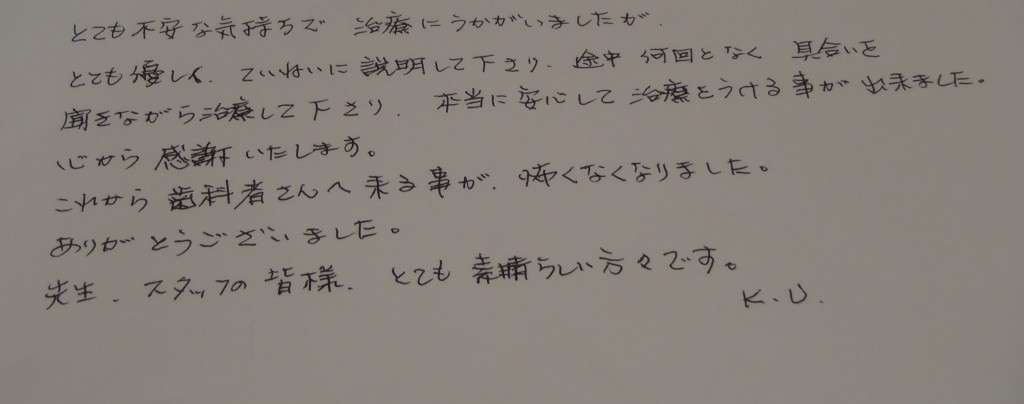 とても不安な気持ちで 治療にうかがいましたが、
とても優しく、ていねいに説明して下さり、途中 何回となく 具合いを
聞きながら治療して下さり、本当に安心して治療をうける事が出来ました。
心から感謝いたします。
これから歯科者さんへ来る事が、怖くなくなりました。
ありがとうございました。
先生、スタッフの皆様、とても素晴らしい方々です。
K.U.